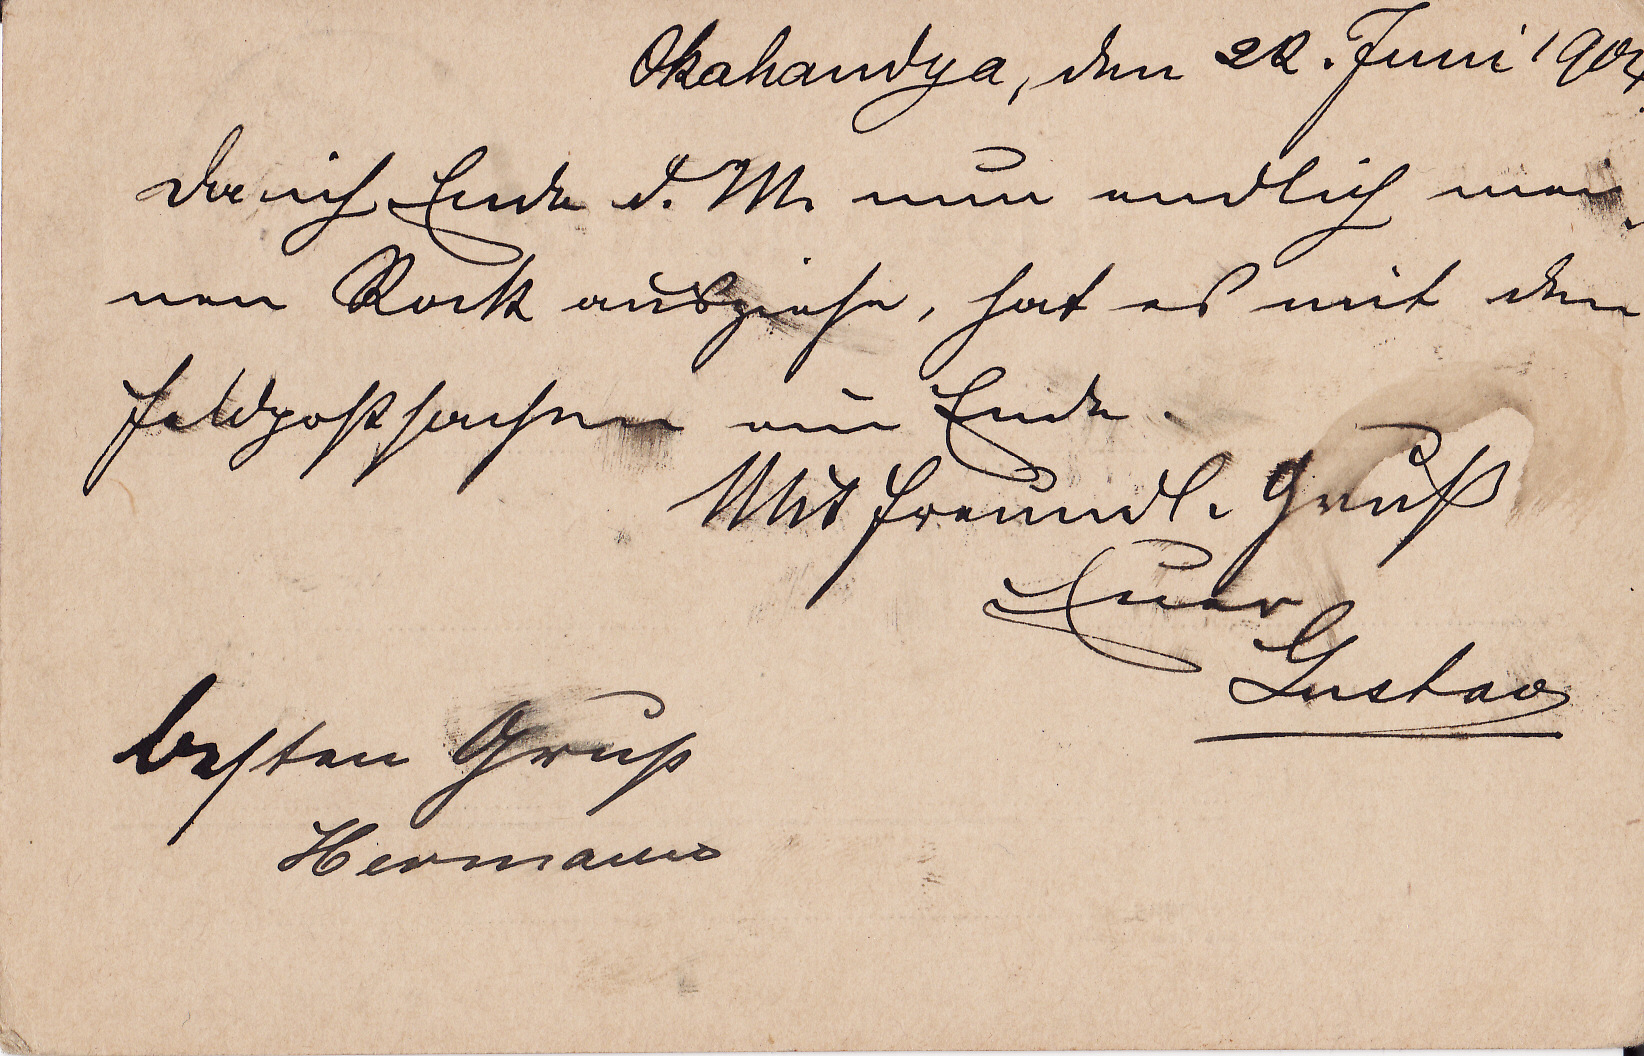 Okahandya, den 22. Juni 1904.
Da ich Ende d. M. nun endlich mei-
nen Rock ausziehe, hat es mit den
Feldpostsachen ein Ende.
Mit freundl. Gruß
Euer
Gustav
besten Gruß
Hermann